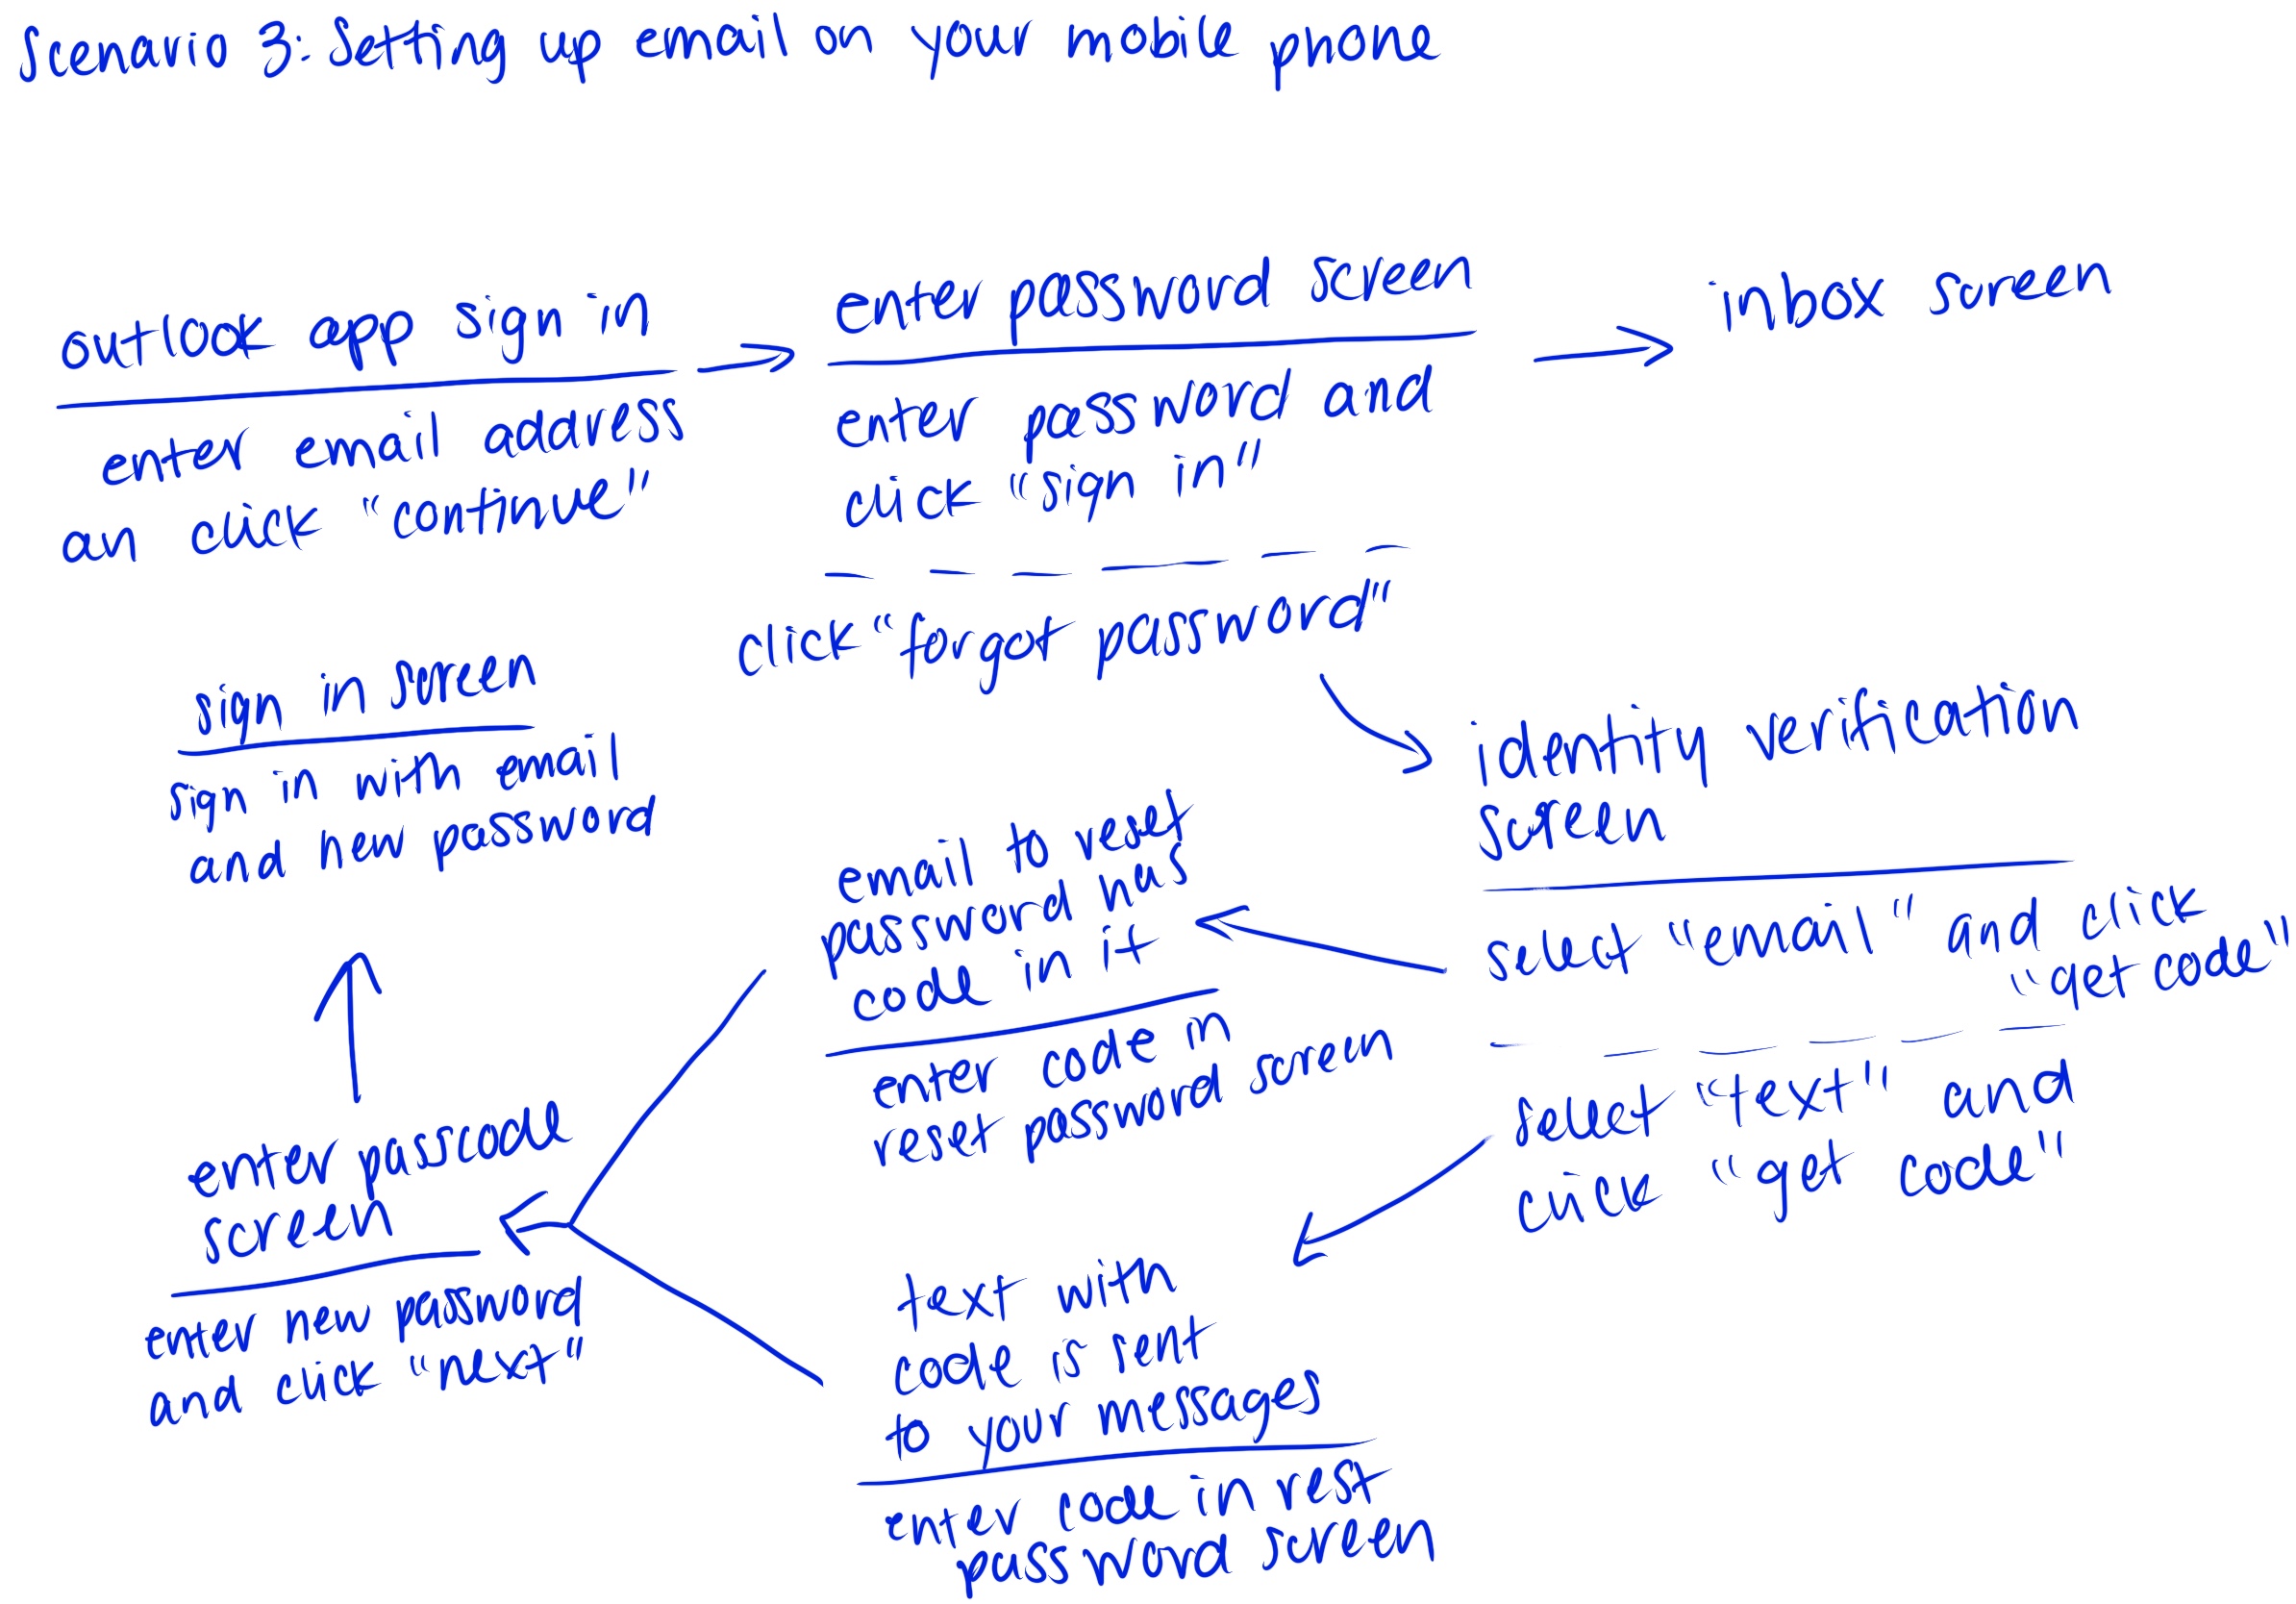 Scenario 3: Setting up email on your mobile phone
outlook app sign in
enter email address
an click "continue"
enter password screen
enter password and
click "sign in"
click "forgot password"
inbox screen
identity verification
screen
select "email" and click
"get code"
select "text" and
click "get code"
email to reset
password has
code in it
enter code in
reset password screen
text with
code is sent
to your messages
enter code in rest
password screen
enter passcode
screen
enter new password
and click "next"
sign in screen
sign in with email
and new password